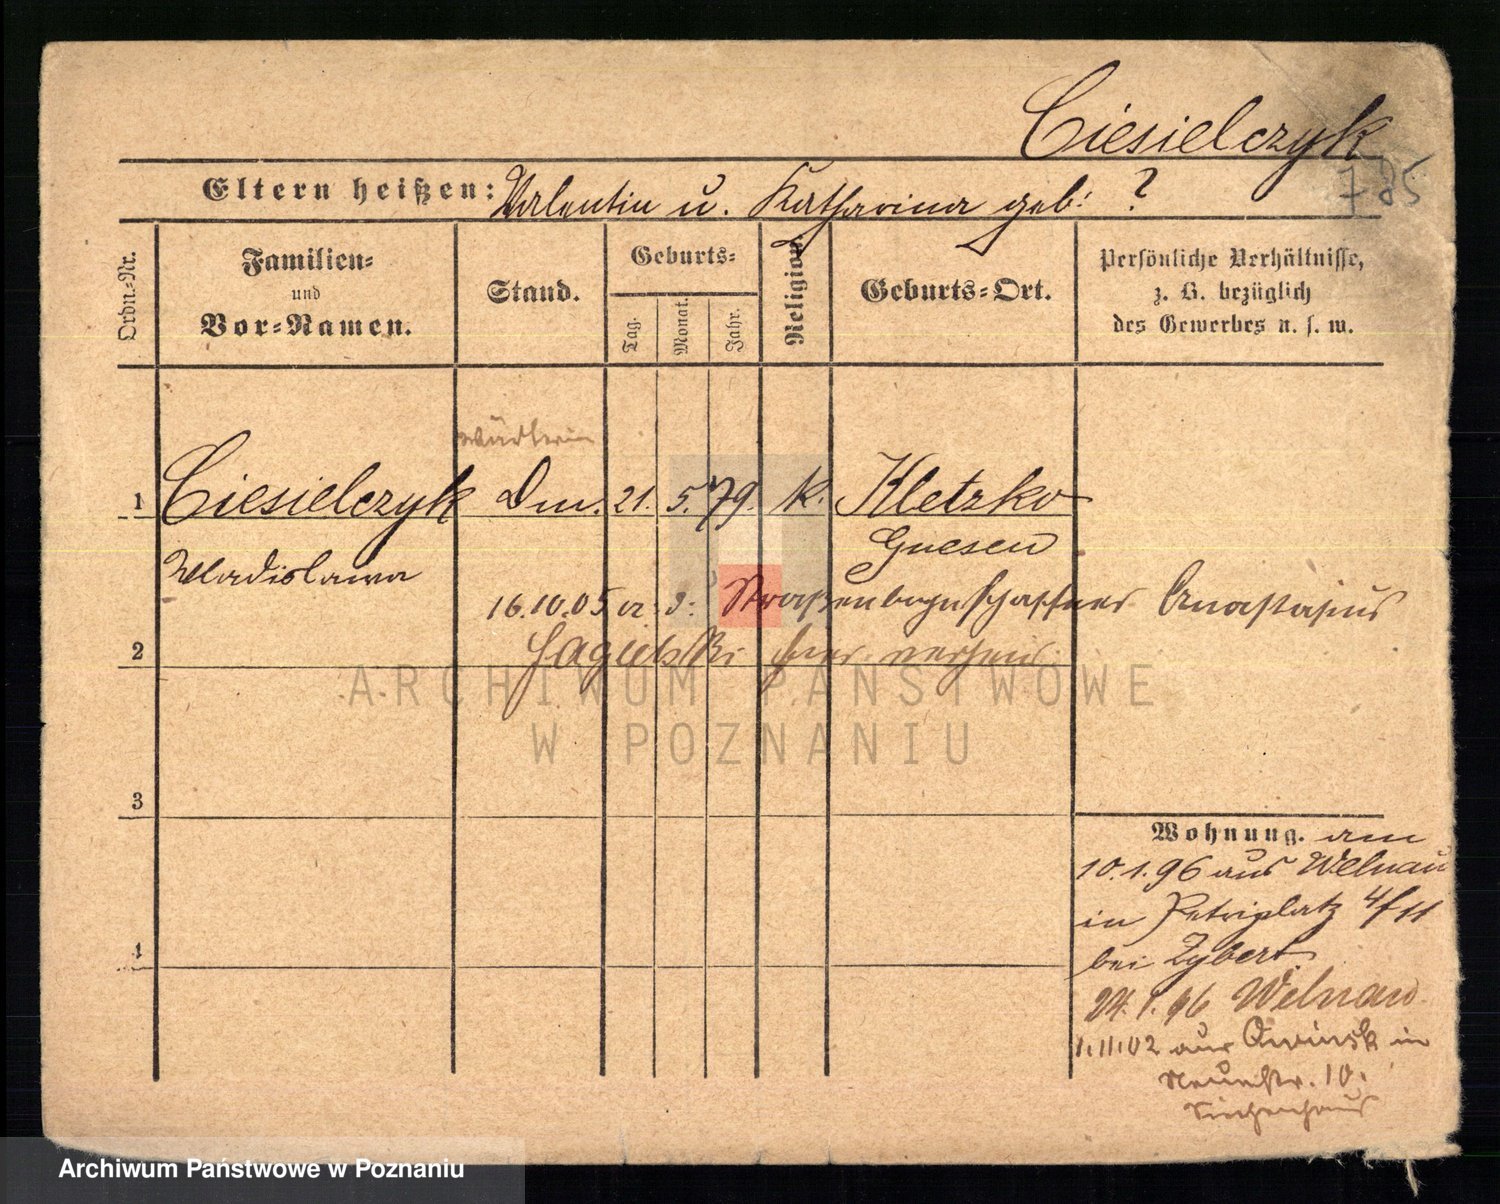 Ciesielczyk
785
Eltern heißen: Valentin u. Katharina geb: ?
Ordn.-Nr.
Familien-
und
Vor-Namen.
Stand.
Geburts-
Tag.
Monat.
Jahr.
Religion.
Geburts-Ort.
Persönliche Verhältnisse,
z. B. bezüglich
des Gewerbes u. s. w.
Wärterin
1 Ciesielczyk Dm. 21. 5. 79. k. Kletzko
Gnesen
Wladislawa
16.10.05 a. d. Straßenbahnschaffner Anastasius
2
hier verheir.
ARCHIWUM PAŃSTWOWE
W POZNANIU
3
4
Wohnung. am
10.1.96 aus Welnau
in Petriplatz 4/II
bei Zybert
24.1.96 Welnau
1.11.02 aus Owinsk in
Neuestr. 10.
Siechenhaus
Archiwum Państwowe w Poznaniu